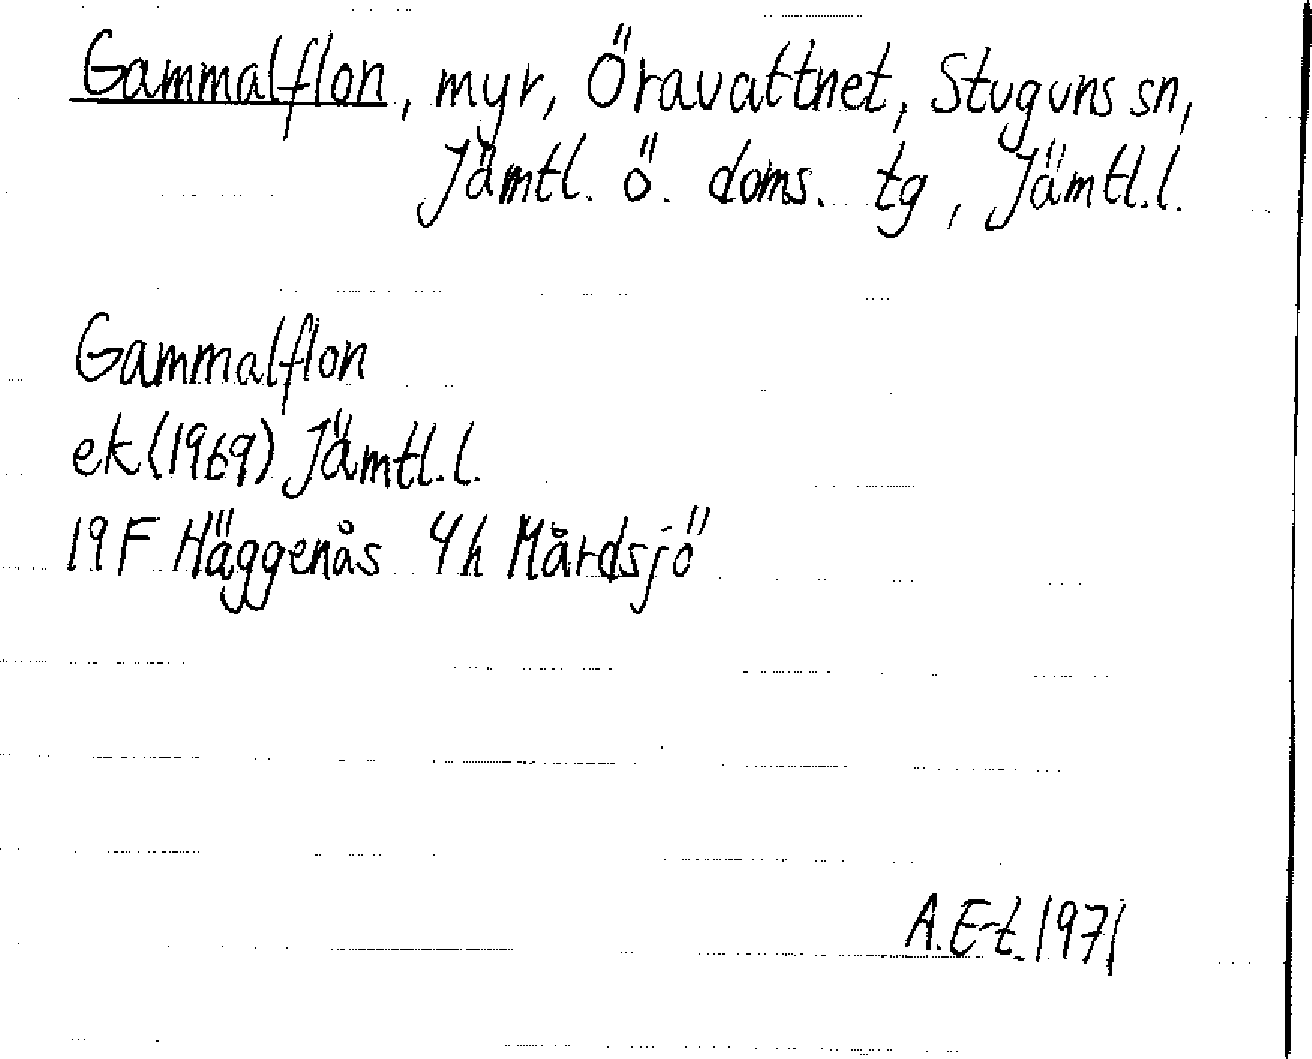 Gammalflon, myr, Öravattnet, Stuguns sn,
Jämtl. ö. doms. tg, Jämtl.l.
Gammalflon
ek (1969) Jämtl.l.
19F Häggenås 4h Mårdsjö
A.E-t. 1971